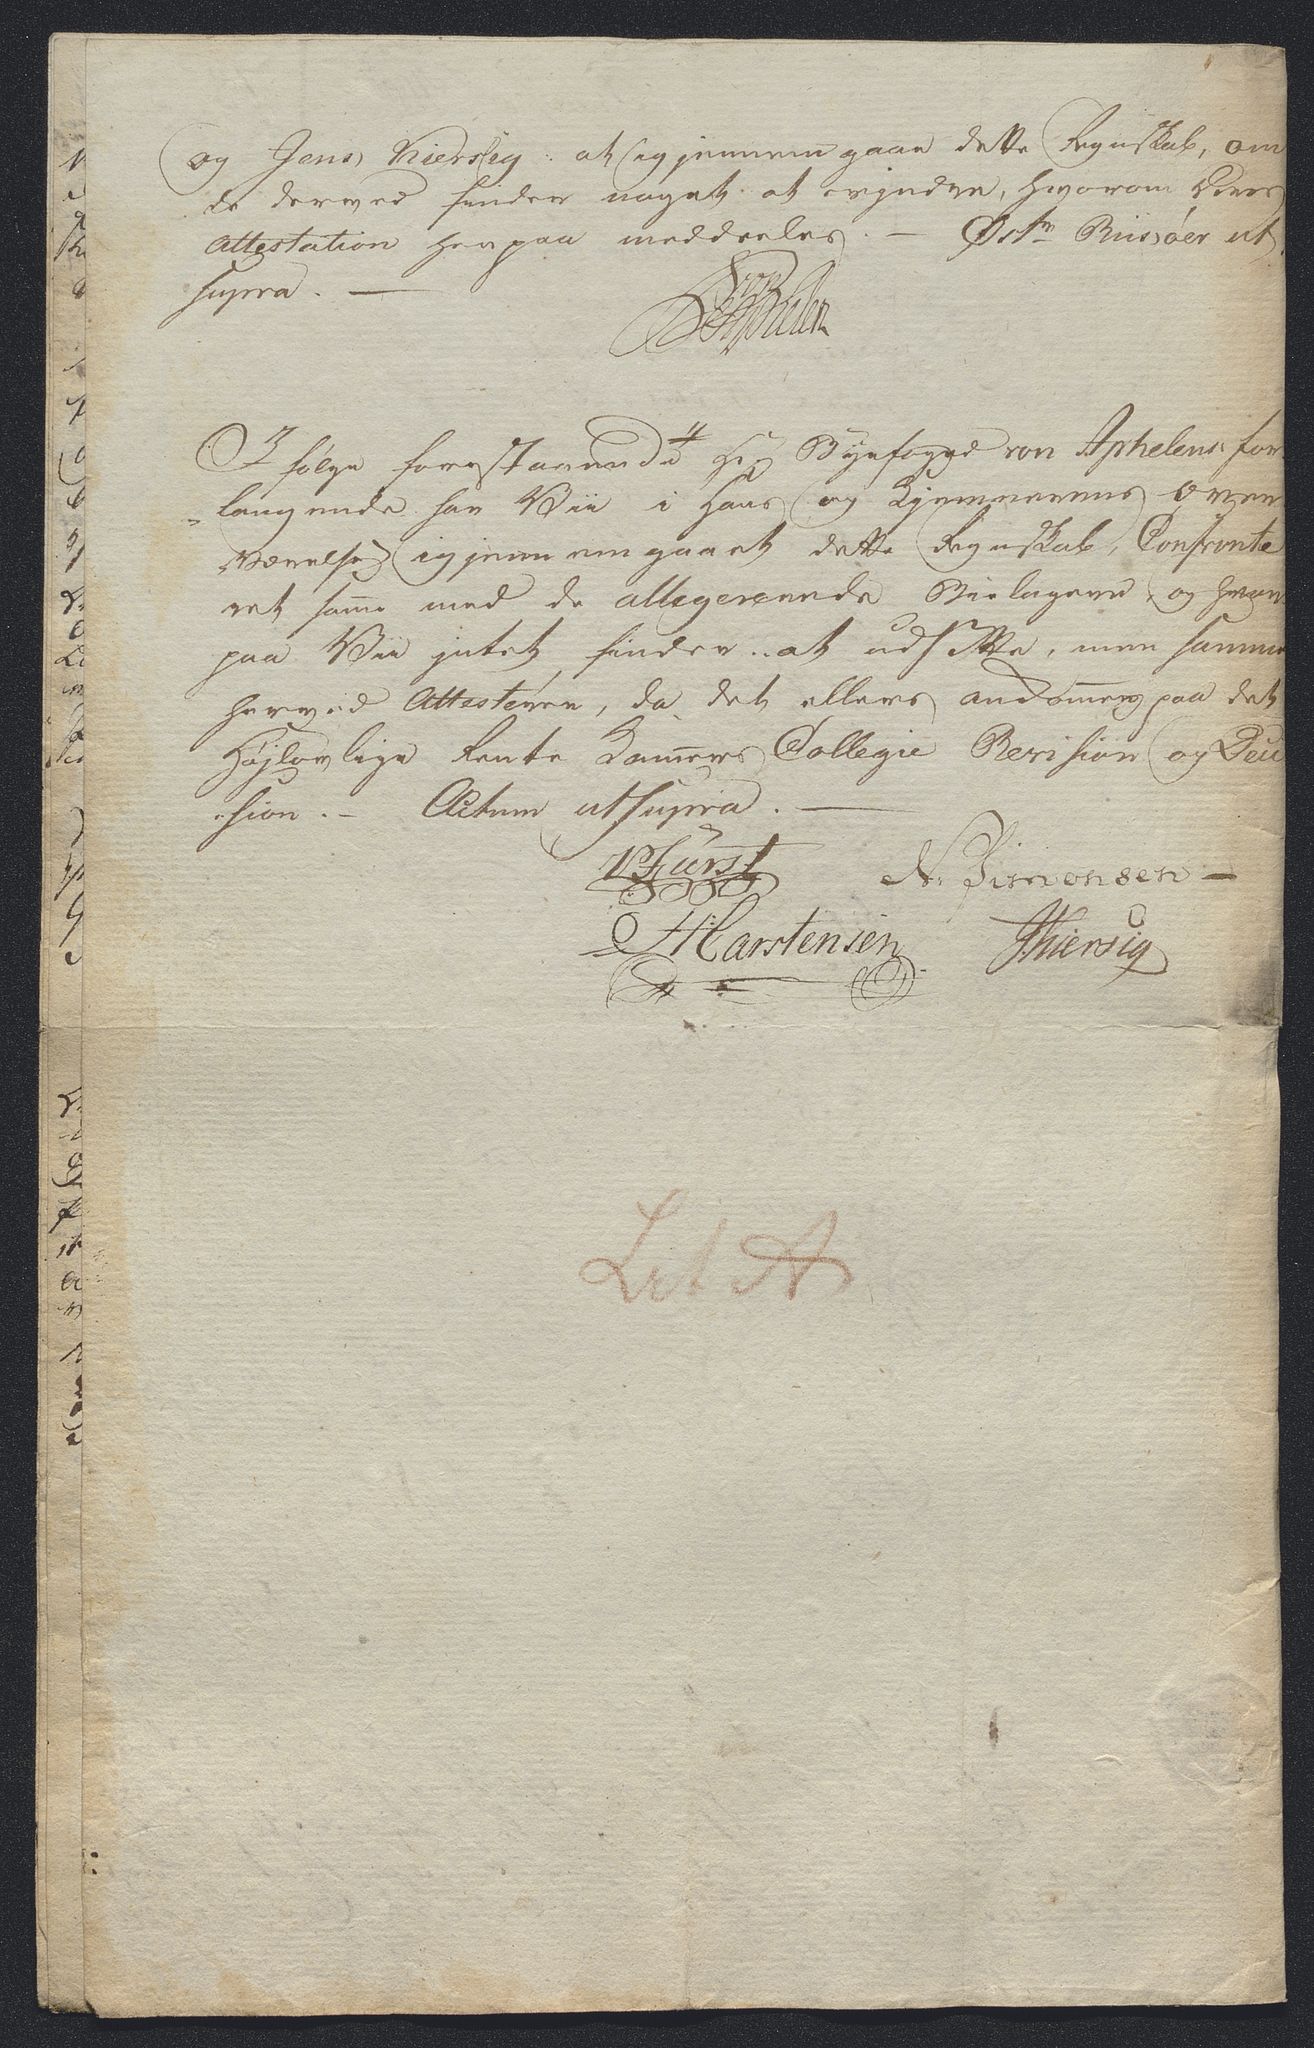 og Jens Kiersig at igjennemgaae dette Regnskab, om
de derved finder noget at erindre, hvorom Deres
Attestation herpaa meddeeles. — Østr Riisøer ut
supra. —
von Aphelen
I følge forestaaende Hr Byefoged von Aphelens for
langende har Vii i Hans og Kjemnerens Over
værelse igjennemgaaet dette Regnskab, Confronte
ret samme med de allegerende Bielagere, og hvor
paa Vii intet finder at udsætte, men samme
herved Attesterer, da det ellers ankommer paa det
Højlovlige Rente Kammers Collegie Revision og Deci
sion. — Actum ut supra. —
Fürst N. Simonsen —
H Carstensen Kiersig
Lit A